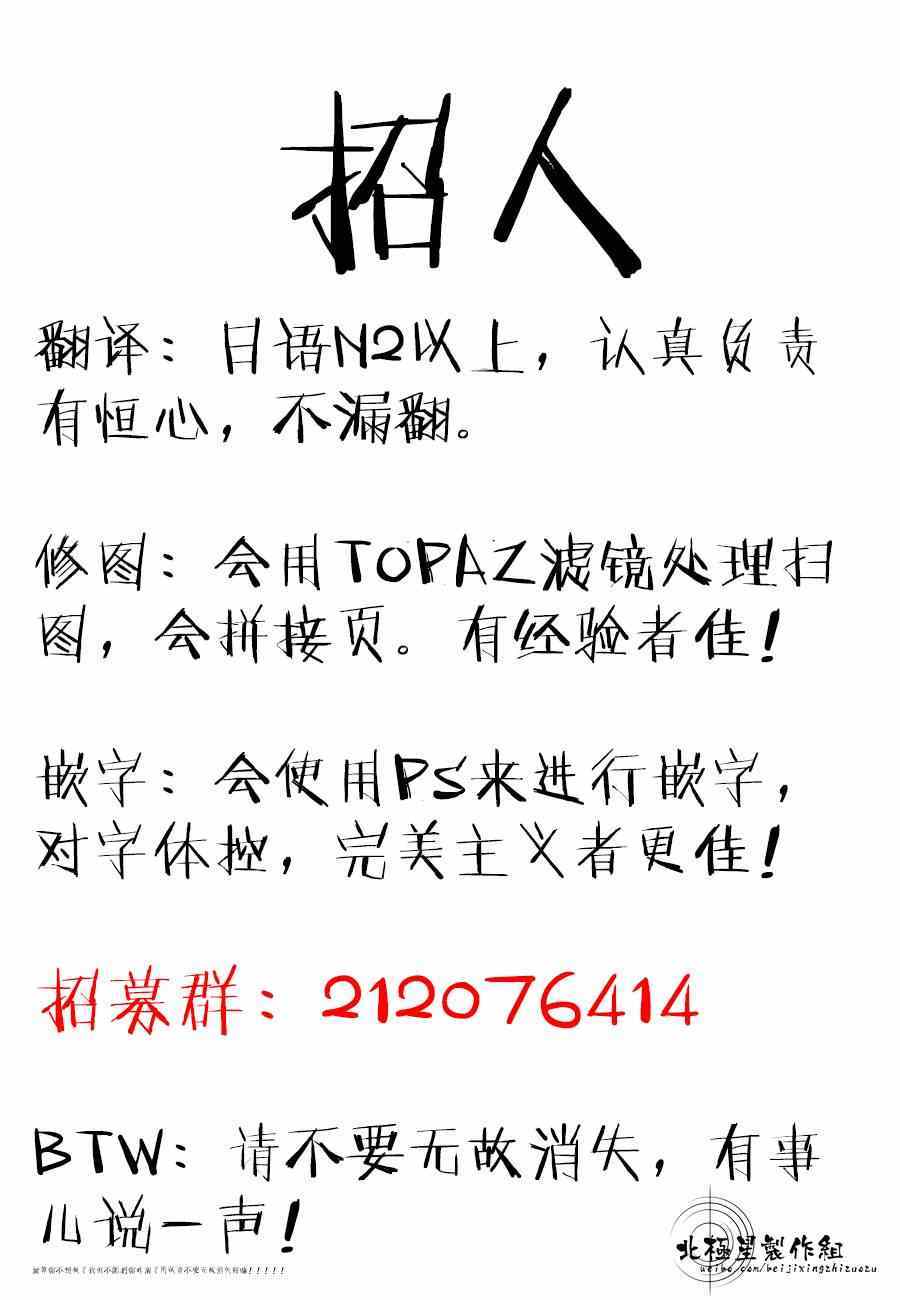 招人
翻译：日语N2以上，认真负责
有恒心，不漏翻。
修图：会用TOPAZ滤镜处理扫
图，会拼接页。有经验者佳！
嵌字：会使用PS来进行嵌字，
对字体控，完美主义者更佳！
招募群：212076414
BTW：请不要无故消失，有事
儿说一声！
北極星製作組
weibo.com/beijixingzhizuozu